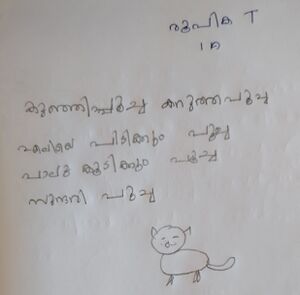 രൂപിക T
1 A
കുഞ്ഞിപ്പൂച്ച കറുത്തപൂച്ച
എലിയെ പിടിക്കും പൂച്ച
പാലു കുടിക്കും പൂച്ച
സുന്ദരി പൂച്ച